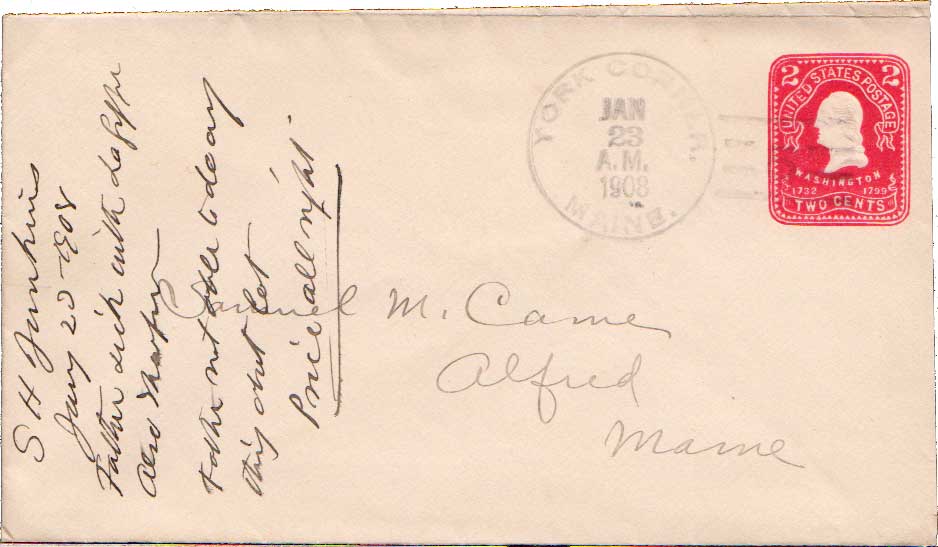 S H Junkins
Jany 20-1908
Father sick with La Grippe
also
Father not able to do any
thing about lot
Price all right.
YORK CORNER, MAINE.
JAN
23
A.M.
1908
2 2
UNITED STATES POSTAGE
WASHINGTON
1732 1799
TWO CENTS
Samuel M. Came
Alfred
Maine